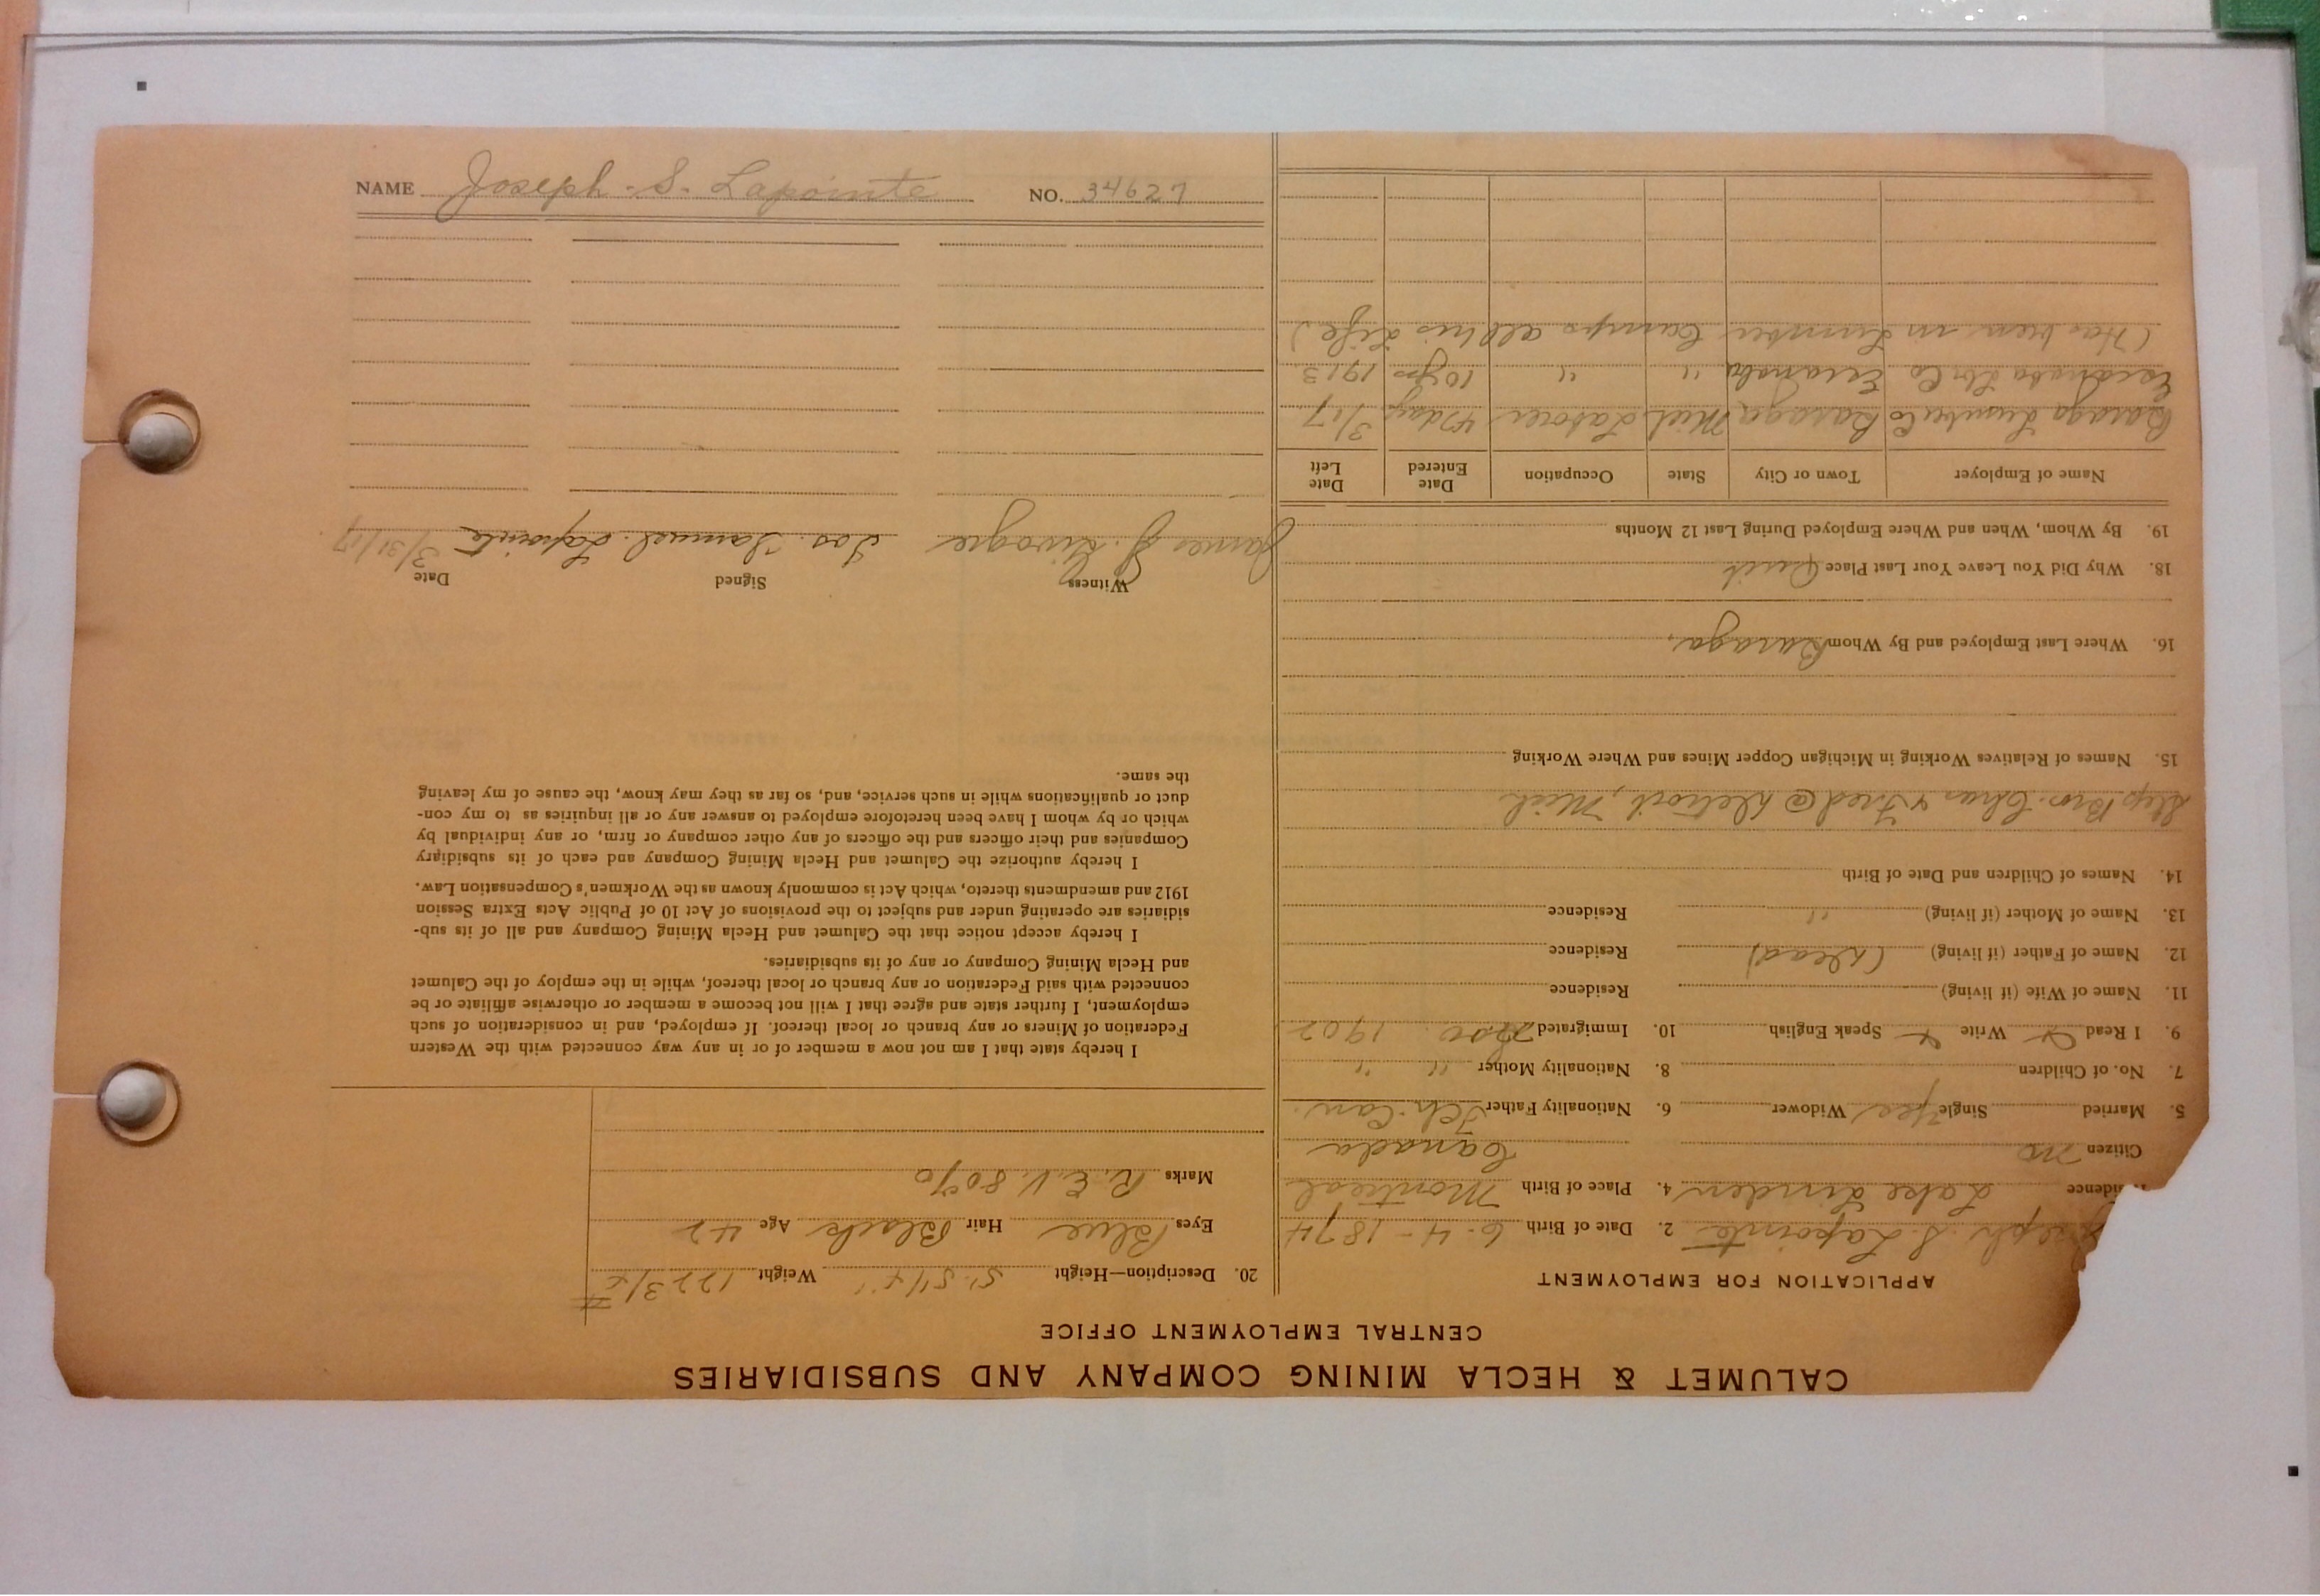 CALUMET & HECLA MINING COMPANY AND SUBSIDIARIES
CENTRAL EMPLOYMENT OFFICE
APPLICATION FOR EMPLOYMENT
Joseph S. Lapointe 2. Date of Birth 6-4-1874
Residence Lake Linden 4. Place of Birth Montreal
Citizen no Canada
5. Married Single Yes Widower 6. Nationality Father Fch. Can.
7. No. of Children 8. Nationality Mother " "
9. I Read x Write x Speak English 10. Immigrated 1902
11. Name of Wife (if living) Residence
12. Name of Father (if living) (dead) Residence
13. Name of Mother (if living) " Residence
14. Names of Children and Date of Birth
Step Bros. Chas & Fred @ Detroit, Mich
15. Names of Relatives Working in Michigan Copper Mines and Where Working
16. Where Last Employed and By Whom Baraga,
18. Why Did You Leave Your Last Place Quit
19. By Whom, When and Where Employed During Last 12 Months
Name of Employer Town or City State Occupation Date Entered Date Left
Baraga Lumber Co Baraga Mich Laborer 4 days 3/17
Escanaba Lbr Co Escanaba " " 10 yrs 1913
(Has been in Lumber Camps all his Life)
20. Description—Height 5' 5 1/4" Weight 122 3/4 #
Eyes Blue Hair Black Age 42
Marks R.E.V. 80%
I hereby state that I am not now a member of or in any way connected with the Western
Federation of Miners or any branch or local thereof. If employed, and in consideration of such
employment, I further state and agree that I will not become a member or otherwise affiliate or be
connected with said Federation or any branch or local thereof, while in the employ of the Calumet
and Hecla Mining Company or any of its subsidiaries.
I hereby accept notice that the Calumet and Hecla Mining Company and all of its sub-
sidiaries are operating under and subject to the provisions of Act 10 of Public Acts Extra Session
1912 and amendments thereto, which Act is commonly known as the Workmen's Compensation Law.
I hereby authorize the Calumet and Hecla Mining Company and each of its subsidiary
Companies and their officers and the officers of any other company or firm, or any individual by
which or by whom I have been heretofore employed to answer any or all inquiries as to my con-
duct or qualifications while in such service, and, so far as they may know, the cause of my leaving
the same.
Witness Signed Date
James J. Jos. Samuel Lapointe 3/31/17
NAME Joseph-S-Lapointe NO. 34627